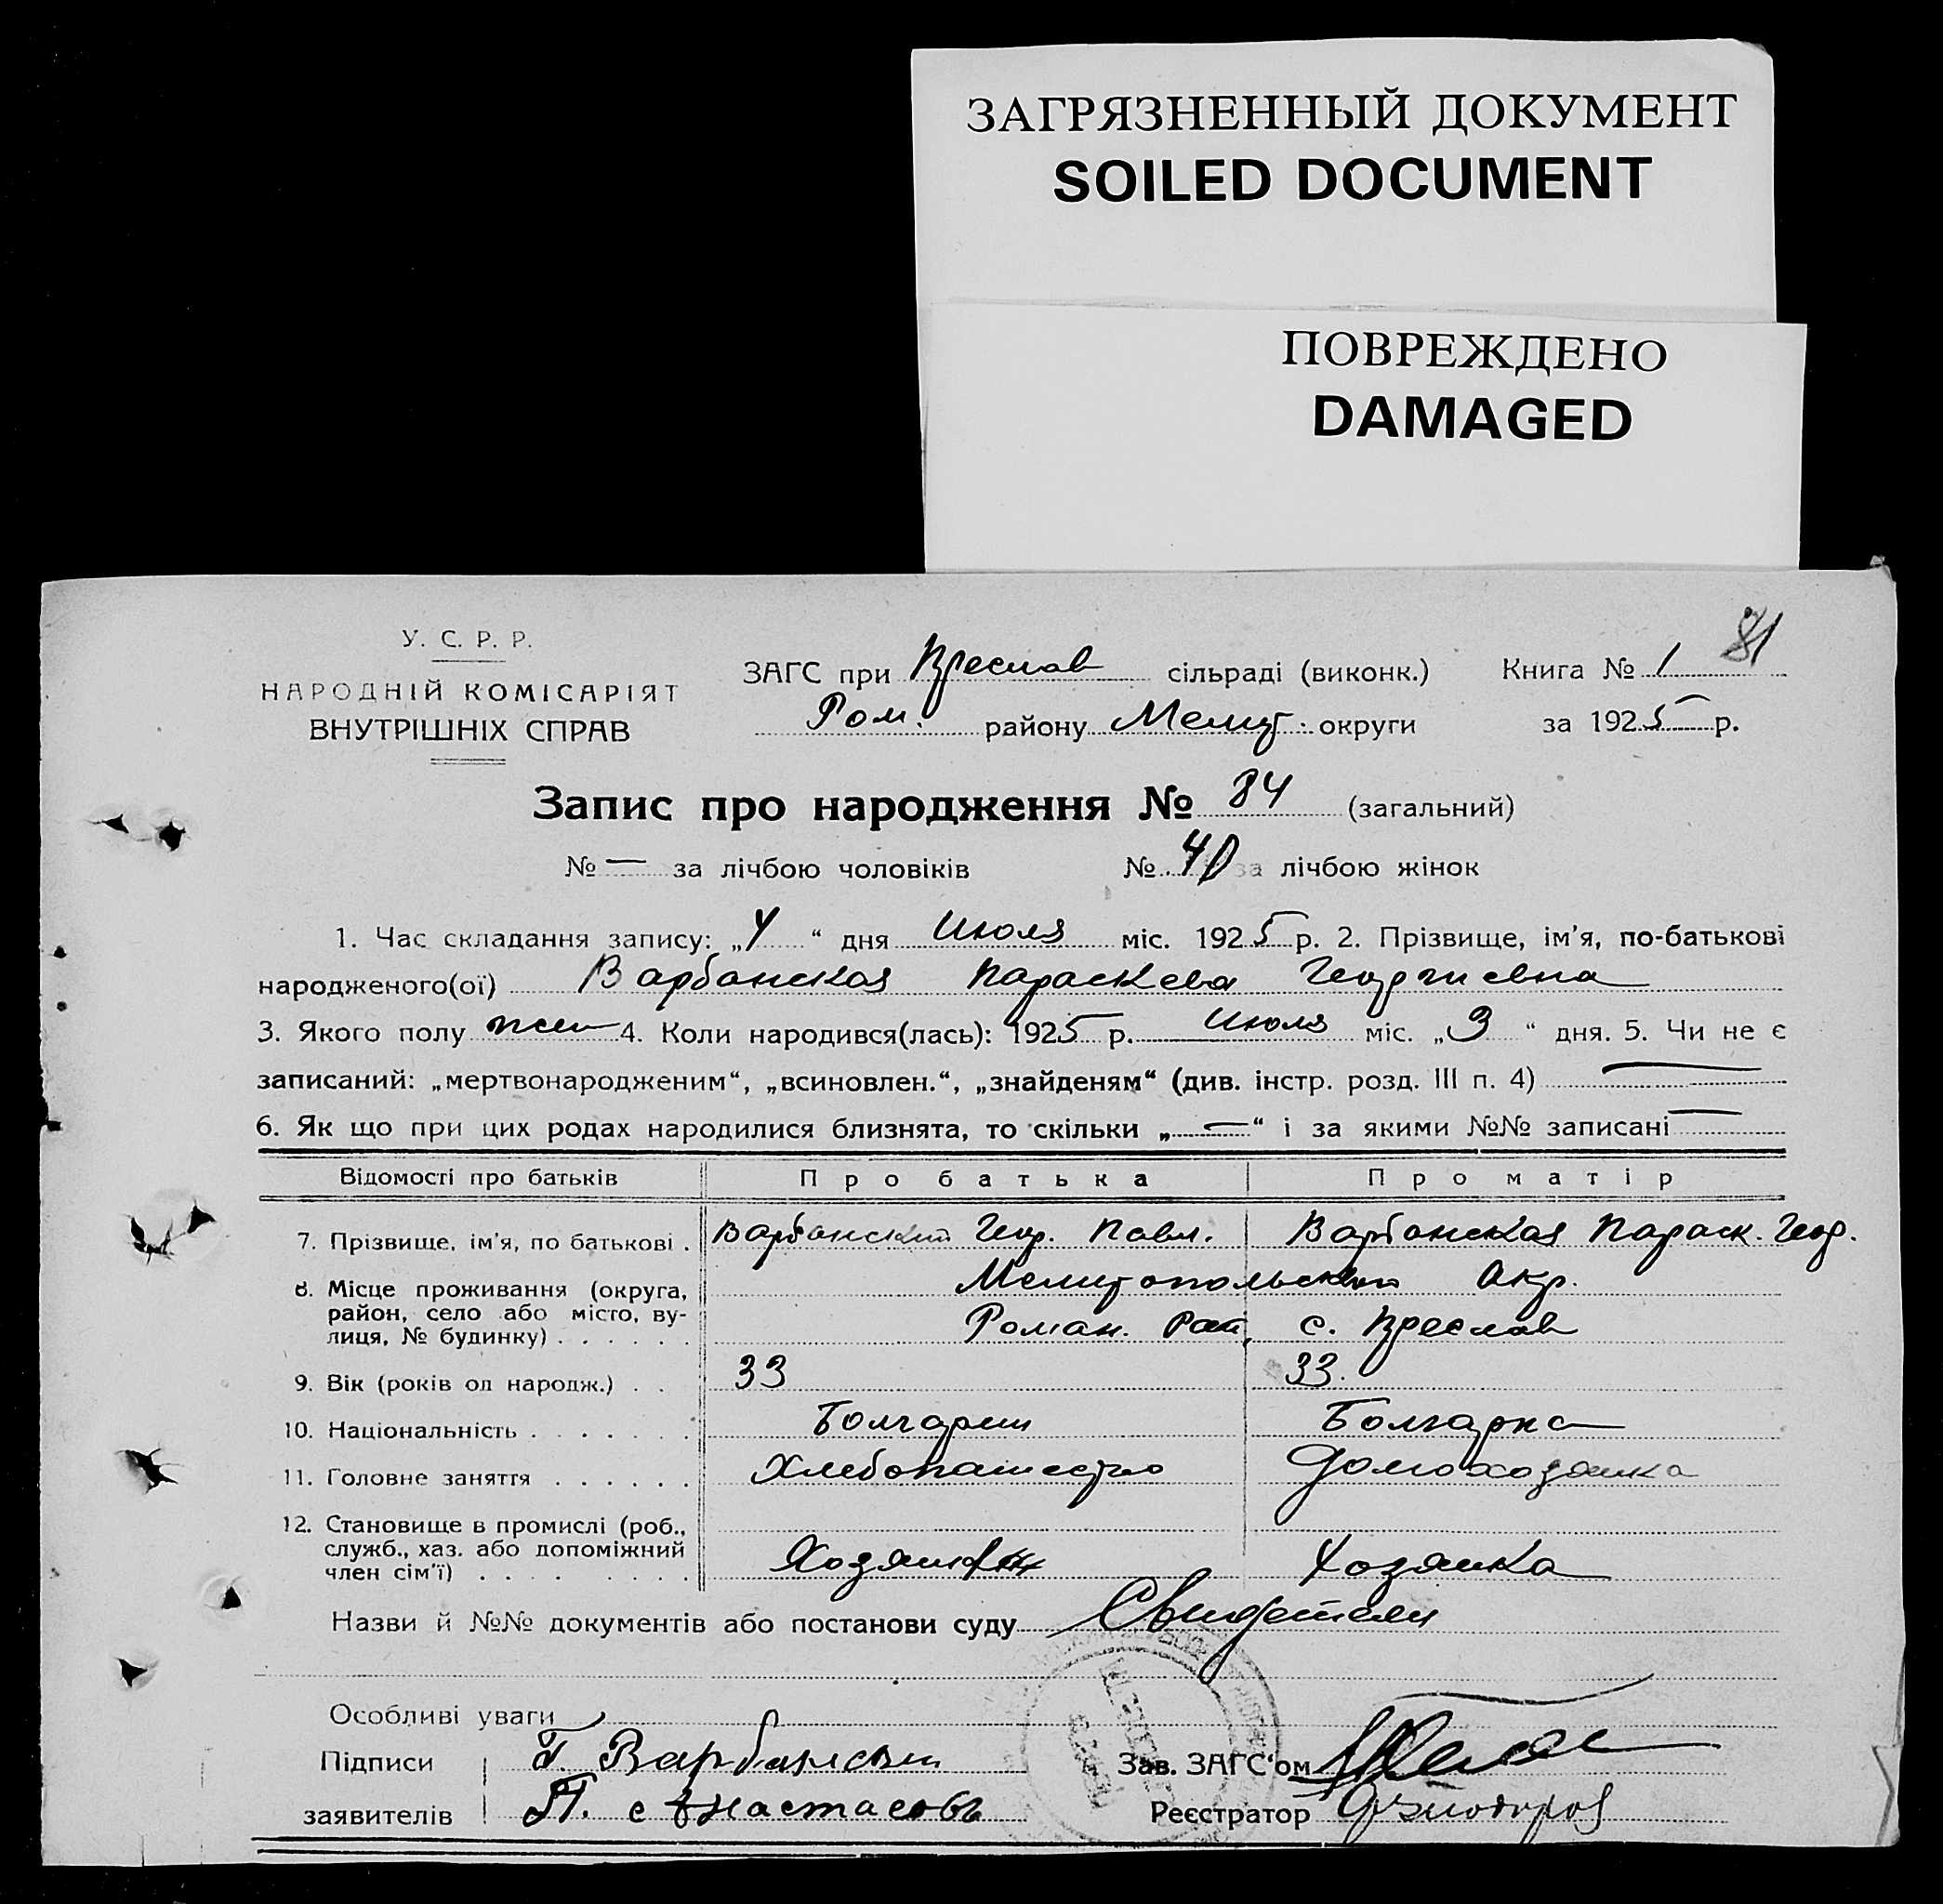 ЗАГРЯЗНЕННЫЙ ДОКУМЕНТ
SOILED DOCUMENT
ПОВРЕЖДЕНО
DAMAGED
81
У. С. Р. Р.
НАРОДНІЙ КОМІСАРІЯТ
ВНУТРІШНІХ СПРАВ
ЗАГС при Преслав сільраді (виконк.) Книга № 1
Ром. району Мелит. округи за 1925 р.
Запис про народження № 84 (загальний)
№ — за лічбою чоловіків № 40 за лічбою жінок
1. Час складання запису: „4“ дня Июля міс. 1925 р. 2. Прізвище, ім'я, по-батькові
народженого(ої) Варбанская Параскева Георгиевна
3. Якого полу жен 4. Коли народився(лась): 1925 р. Июля міс. „3“ дня. 5. Чи не є
записаний: „мертвонародженим“, „всиновлен.“, „знайденям“ (див. інстр. розд. III п. 4) —
6. Як що при цих родах народилися близнята, то скільки „—“ і за якими №№ записані —
Відомості про батьків Про батька Про матір
7. Прізвище, ім'я, по батькові . Варбанский Геор. Павл. Варбанская Параск. Геор.
8. Місце проживання (округа, Мелитопольский Окр.
район, село або місто, ву-
лиця, № будинку) . . . . . . Роман. Рай, с. Преслав
9. Вік (років од народж.) . . 33 33.
10. Національність . . . . . . . Болгарин Болгарка
11. Головне заняття . . . . . . Хлебопашество Домохозяйка
12. Становище в промислі (роб.,
служб., хаз. або допоміжний
член сім'ї) . . . . . . . . . Хозяин Хозяйка
Назви й №№ документів або постанови суду Свидетели
Особливі уваги
Підписи Г. Варбански Зав. ЗАГС'ом
заявителів П. Анастасовъ Реєстратор